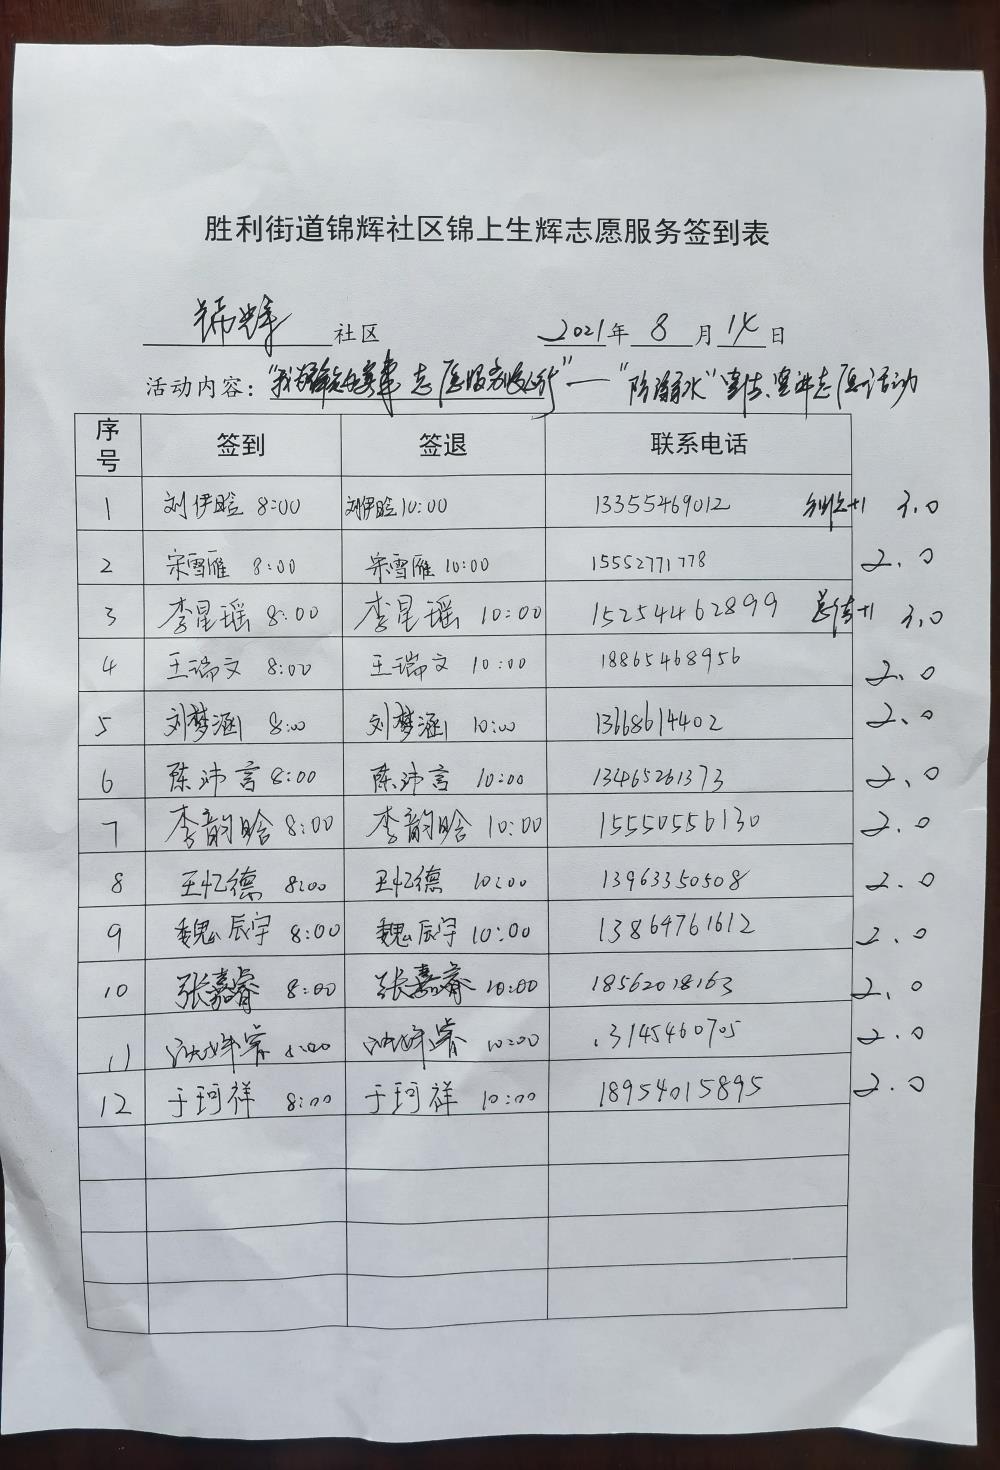 胜利街道锦辉社区锦上生辉志愿服务签到表
锦辉 社区 2021年 8 月 14 日
活动内容："我为群众办实事 志愿服务"——"防溺水"宣传志愿活动
序号 签到 签退 联系电话
1 刘伊晗 8:00 刘伊晗 10:00 13355469012 +1 3.0
2 宋雪雁 8:00 宋雪雁 10:00 15552771778 2.0
3 李星瑶 8:00 李星瑶 10:00 15254462899 总结+1 3.0
4 王瑞文 8:00 王瑞文 10:00 18865468956 2.0
5 刘梦涵 8:00 刘梦涵 10:00 13668614402 2.0
6 陈沛言 8:00 陈沛言 10:00 13465261373 2.0
7 李韵晗 8:00 李韵晗 10:00 15550556130 2.0
8 王忆德 8:00 王忆德 10:00 13963350508 2.0
9 魏辰宇 8:00 魏辰宇 10:00 13864761612 2.0
10 张嘉睿 8:00 张嘉睿 10:00 18562018163 2.0
11 8:00 10:00 3145460705 2.0
12 于珂祥 8:00 于珂祥 10:00 18954015895 2.0